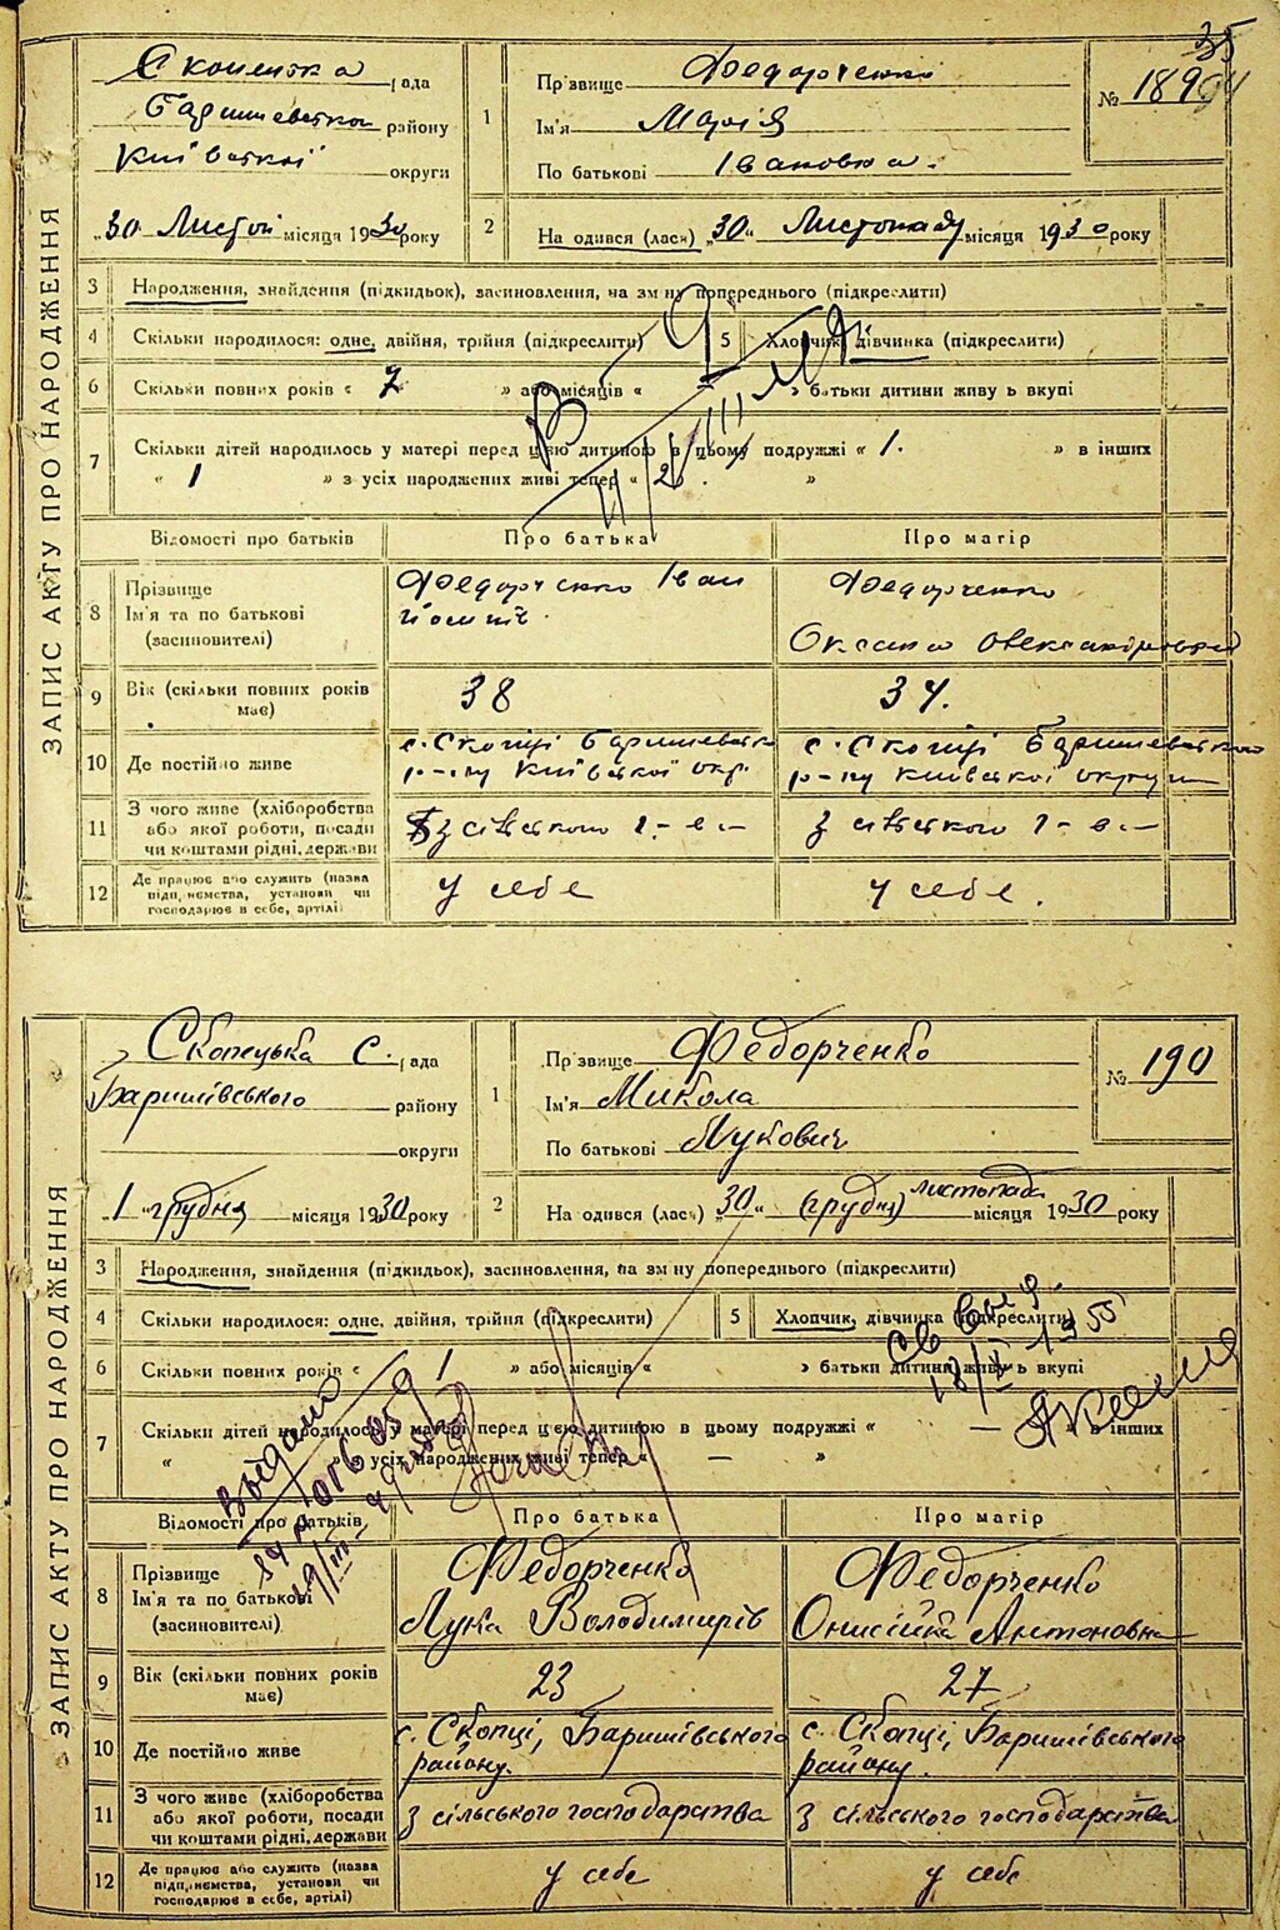 35
ЗАПИС АКТУ ПРО НАРОДЖЕННЯ
Скопецка рада
Баришевском району
Київскої округи
„30 Листоп місяця 1930 року
1
Прізвище Федорченко
Ім'я Марія
По батькові Івановна.
№ 189
2
На одився (лась) „30“ Листопаду місяця 1930 року
3 Народження, знайдення (підкидьок), засиновлення, на зміну попереднього (підкреслити)
4 Скільки народилося: одне, двійня, трійня (підкреслити) 5 Хлопчик, дівчинка (підкреслити)
6 Скільки повних років « 7 » або місяців « » батьки дитини живуть вкупі
7 Скільки дітей народилось у матері перед цією дитиною в цьому подружжі « 1. » в інших
« 1 » з усіх народжених живі тепер « 2. »
Відомості про батьків Про батька Про матір
8 Прізвище Ім'я та по батькові (засиновителі)
Федорченко Іван
Йосипів.
Федорченко
Оксана Олександровна
9 Вік (скільки повних років має) 38 34.
10 Де постійно живе
с. Скопці Баришевсько
р-ну Київської окр.
с. Скопці Баришевського
р-ну Київської округи
11 З чого живе (хліборобства або якої роботи, посади чи коштами рідні, держави
з сівського г-ва
з сівського г-ва
12 Де працює або служить (назва підприємства, установи чи господарює в себе, артілі)
у себе
у себе.
ЗАПИС АКТУ ПРО НАРОДЖЕННЯ
Скопецька С. рада
Баришівського району
округи
„1“ грудня місяця 1930 року
1
Прізвище Федорченко
Ім'я Микола
По батькові Лукович
№ 190
2
На одився (лась) „30“ (грудня) листопада місяця 1930 року
3 Народження, знайдення (підкидьок), засиновлення, на зміну попереднього (підкреслити)
4 Скільки народилося: одне, двійня, трійня (підкреслити) 5 Хлопчик, дівчинка (підкреслити)
6 Скільки повних років « 1 » або місяців « » батьки дитини живуть вкупі
7 Скільки дітей народилось у матері перед цією дитиною в цьому подружжі « — в інших
« » з усіх народжених живі тепер « — »
Відомості про батьків Про батька Про матір
8 Прізвище Ім'я та по батькові (засиновителі)
Федорченко
Лука Володимирів
Федорченко
Онисійка Антоновна
9 Вік (скільки повних років має) 23 27
10 Де постійно живе
с. Скопці, Баришівського
району.
с. Скопці, Баришівського
району.
11 З чого живе (хліборобства або якої роботи, посади чи коштами рідні, держави
з сільського господарства
з сільського господарства
12 Де працює або служить (назва підприємства, установи чи господарює в себе, артілі)
у себе
у себе